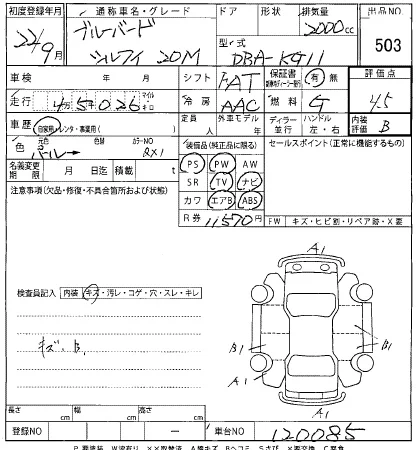 初度登録年月 通称車名・グレード ドア 形状 排気量 出品NO
22/9月 ブルーバード シルフィ 20M 2000cc 503
型・式 DBA-KG11
車検 年 月 シフト FAT 保証書 有 無 評価点
走行 4万5千026 マイル キロ 冷房 AAC 燃料 G 4.5
車歴 自家用・レンタ・事業用( ) 定員 人 外車モデル 年 ディーラー 並行 ハンドル 左・右 内装評価 B
色 元色 パール 色替 カラーNO QX1 装備品(純正品に限る) セールスポイント(正常に機能するもの)
名義変更期限 月 日迄 積載 t PS PW AW
注意事項(欠品・修復・不具合箇所および状態) SR TV ナビ
カワ エアB ABS
R券 11,570円 FW キズ・ヒビ割・リペア跡・X要
A1
検査員記入 内装 キズ・汚レ・コゲ・穴・スレ・キレ
キズ、B,
B1 B1
A1 A1
長さ cm 幅 cm 高さ cm
登録NO ー 車台NO 120085